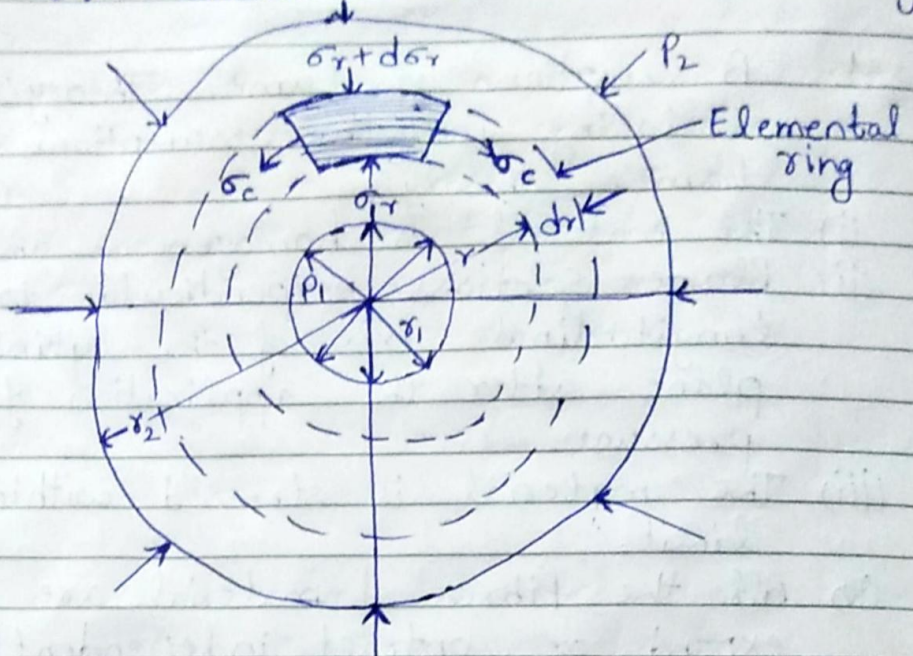 σr+dσr
P2
Elemental
ring
σc
σc
σr
dr
r
P1
r1
r2